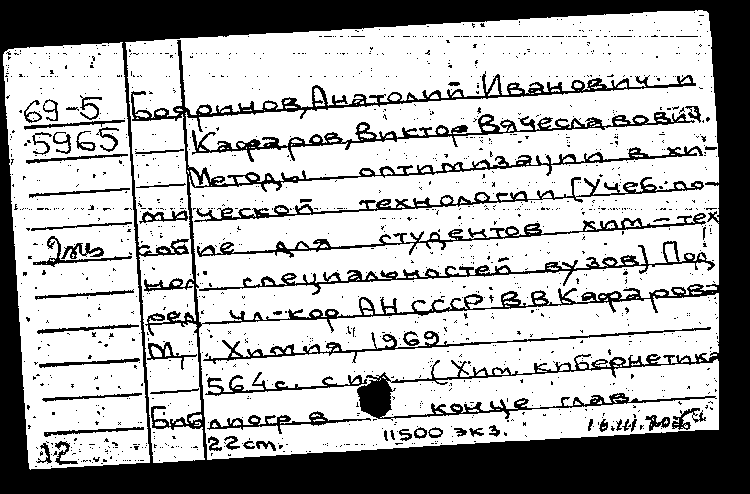 69-5 Бояринов, Анатолий Иванович и
5965 Кафаров, Виктор Вячеславович.
Методы оптимизации в хи-
мической технологии [Учеб. по-
собие для студентов хим.-тех
нол. специальностей вузов] Под
ред. чл.-кор. АН СССР В.В. Кафарова
М., "Химия", 1969.
564 с. с ил. (Хим. кибернетика
Библиогр. в конце глав.
12 22 см. 11500 экз.